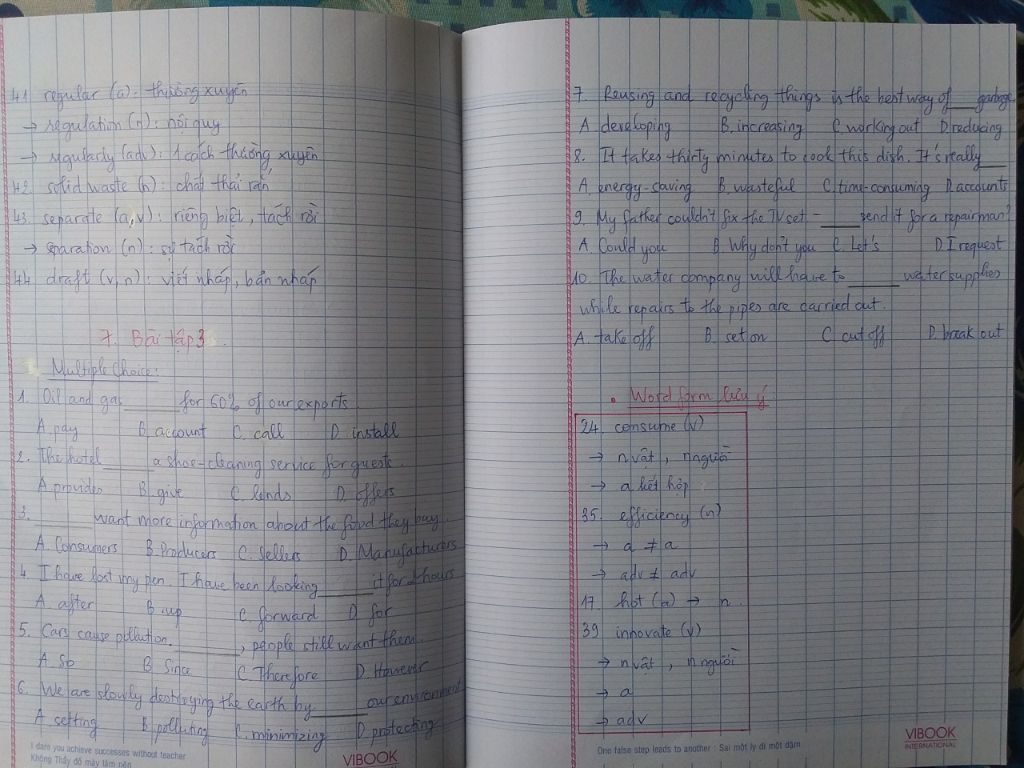 41. regular (a): thường xuyên
→ regulation (n): nội quy
→ regularly (adv): 1 cách thường xuyên
42. solid waste (n): chất thải rắn
43. separate (a,v): riêng biệt, tách rời
→ separation (n): sự tách rời
44. draft (v, n): viết nháp, bản nháp
7. Bài tập 3.
Multiple Choice:
1. Oil and gas ______ for 60% of our exports
A pay B. account C. call D. install
2. The hotel ______ a shoe-cleaning service for guests.
A provides B. give C. lends D. offers
3. ______ want more information about the food they buy.
A. Consumers B. Producers C. Sellers D. Manufacturers
4. I have lost my pen. I have been looking ______ it for 2 hours
A. after B. up C. forward D for
5. Cars cause pollution. ______, people still want them.
A So B Since C. Therefore D. However
6. We are slowly destroying the earth by ______ our environment
A setting B. polluting C. minimizing D protecting
I dam you achieve successes without teacher
Không Thầy đố mày làm nên
VIBOOK
7. Reusing and recycling things is the best way of ___ garbage
A developing B. increasing C. working out D. reducing
8. It takes thirty minutes to cook this dish. It's really ___
A. energy-saving B. wasteful C. time-consuming D. accounts
9. My father couldn't fix the TV set - ____ send it for a repairman?
A. Could you B Why don't you C. Let's D. I request
10. The water company will have to ______ water supplies
while repairs to the pipes are carried out.
A. take off B. set on C. cut off D. break out
• Word form lưu ý
24 consume (v)
→ n vật, n người
→ a kết hợp
35. efficiency (n)
→ a ≠ a
→ adv ≠ adv
17 hot (a) → n.
39 innovate (v)
→ n vật, n người
→ a
→ adv
One false step leads to another : Sai một ly đi một dặm
VIBOOK
INTERNATIONAL